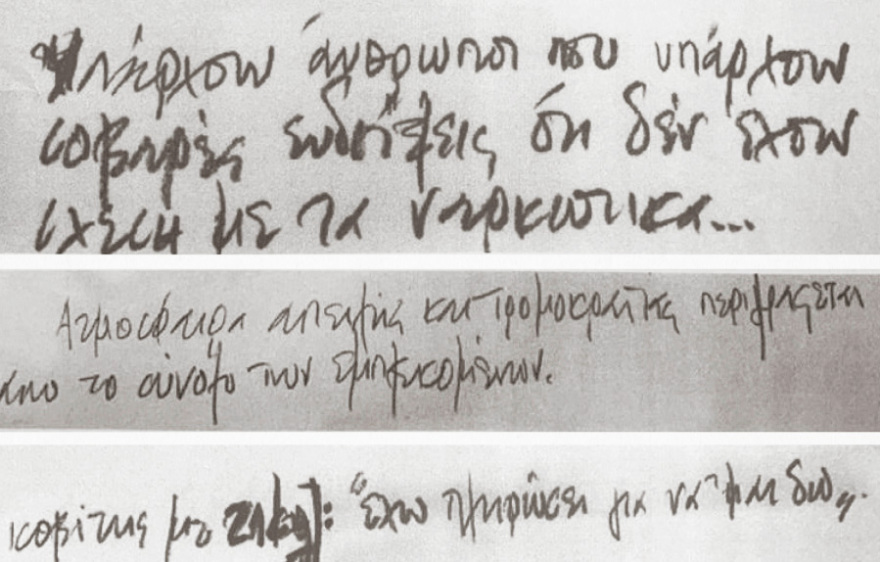 Υπάρχουν άνθρωποι που υπάρχουν
σοβαρές ενδείξεις ότι δέν έχουν
σχέση με τα ναρκωτικα...
Ατμοσφαιρα απειλής και τρομοκρατίας περιφρασεται
απο το σύνολο των εμπλεκομένων.
με "έχω πληρώσει για να 'μαι δω".